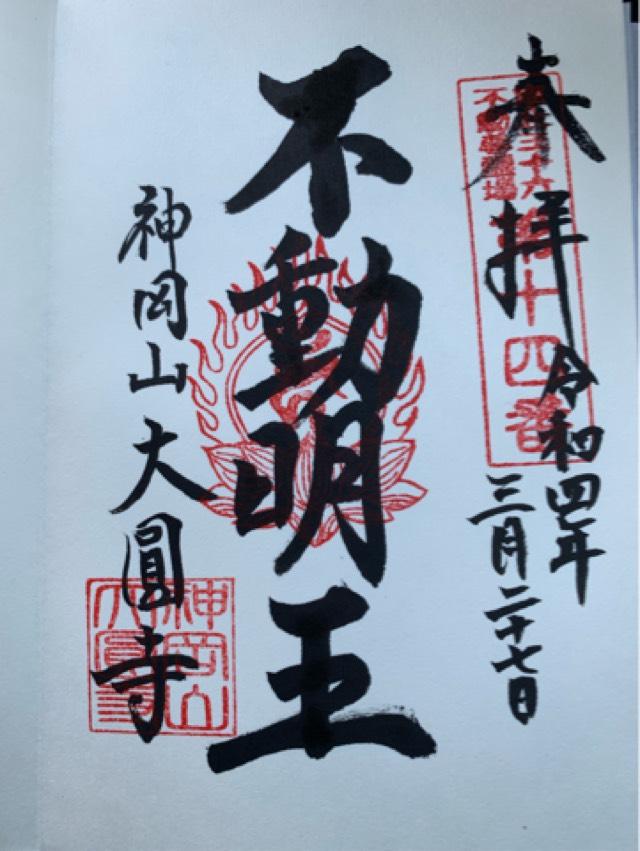 奉拝
令和四年
三月二十七日
三十六
不動霊場
第十四番
不動明王
神岡山大圓寺
神岡山
大圓寺